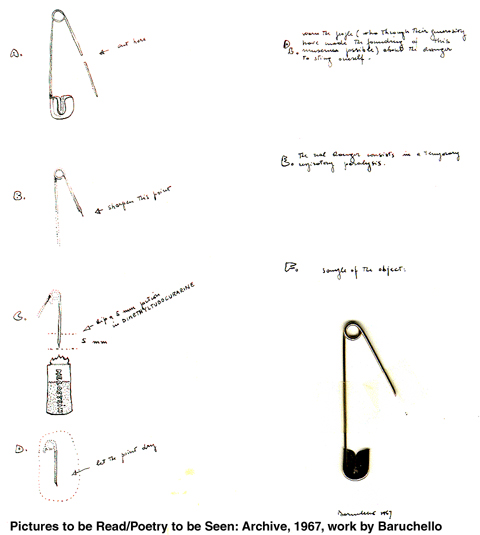 A.
cut here
B.
sharpen this point
C.
dip a 5 mm portion
in DIMETHYLTUBOCURARINE
5 mm
D.
let the point dry
warn the people (who through their generosity
have made the founding of this
museum possible) about the danger
to sting oneself.
the real danger consists in a temporary
respiratory paralysis.
sample of the object:
Baruchello 1967
Pictures to be Read/Poetry to be Seen: Archive, 1967, work by Baruchello